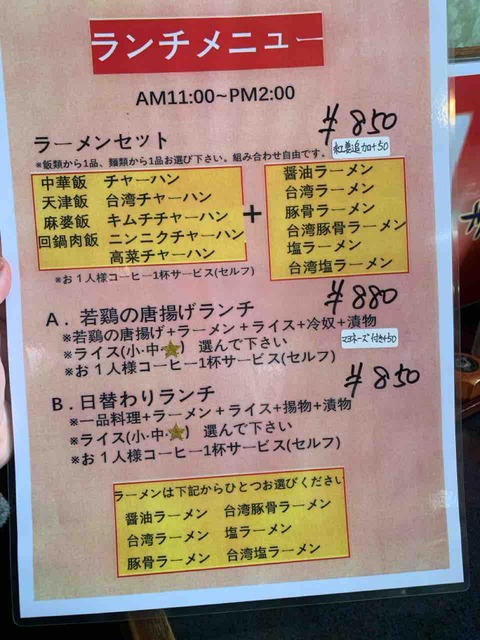 ランチメニュー
AM11:00~PM2:00
¥850
ラーメンセット
※飯類から1品、麺類から1品お選び下さい。組み合わせ自由です。
紅生姜追加+50
中華飯 チャーハン
天津飯 台湾チャーハン
麻婆飯 キムチチャーハン
回鍋肉飯 ニンニクチャーハン
高菜チャーハン
+
醤油ラーメン
台湾ラーメン
豚骨ラーメン
台湾豚骨ラーメン
塩ラーメン
台湾塩ラーメン
※お1人様コーヒー1杯サービス(セルフ)
¥880
A. 若鶏の唐揚げランチ
※若鶏の唐揚げ+ラーメン+ライス+冷奴+漬物
マヨネーズ付き+50
※ライス(小·中·) 選んで下さい
※お1人様コーヒー1杯サービス(セルフ)
¥850
B. 日替わりランチ
※一品料理+ラーメン+ライス+揚物+漬物
※ライス(小·中·) 選んで下さい
※お1人様コーヒー1杯サービス(セルフ)
ラーメンは下記からひとつお選びください
醤油ラーメン 台湾豚骨ラーメン
台湾ラーメン 塩ラーメン
豚骨ラーメン 台湾塩ラーメン